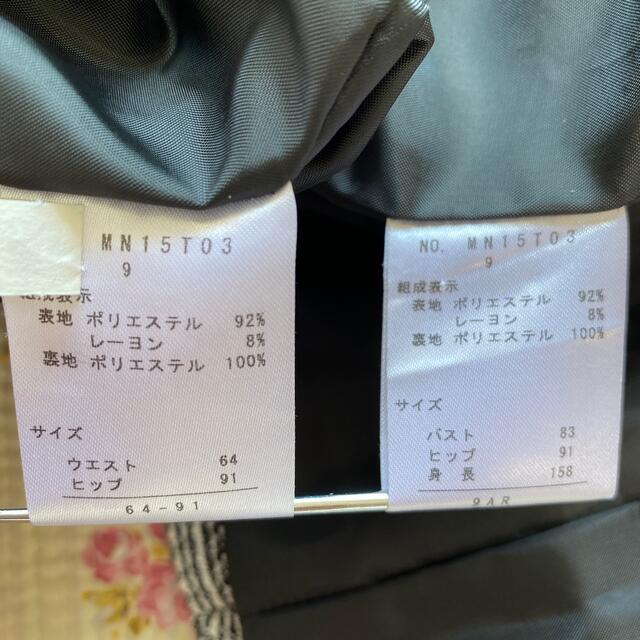 MN15T03
9
組成表示
表地 ポリエステル 92%
レーヨン 8%
裏地 ポリエステル 100%
サイズ
ウエスト 64
ヒップ 91
64-91
NO. MN15T03
9
組成表示
表地 ポリエステル 92%
レーヨン 8%
裏地 ポリエステル 100%
サイズ
バスト 83
ヒップ 91
身長 158
9AR